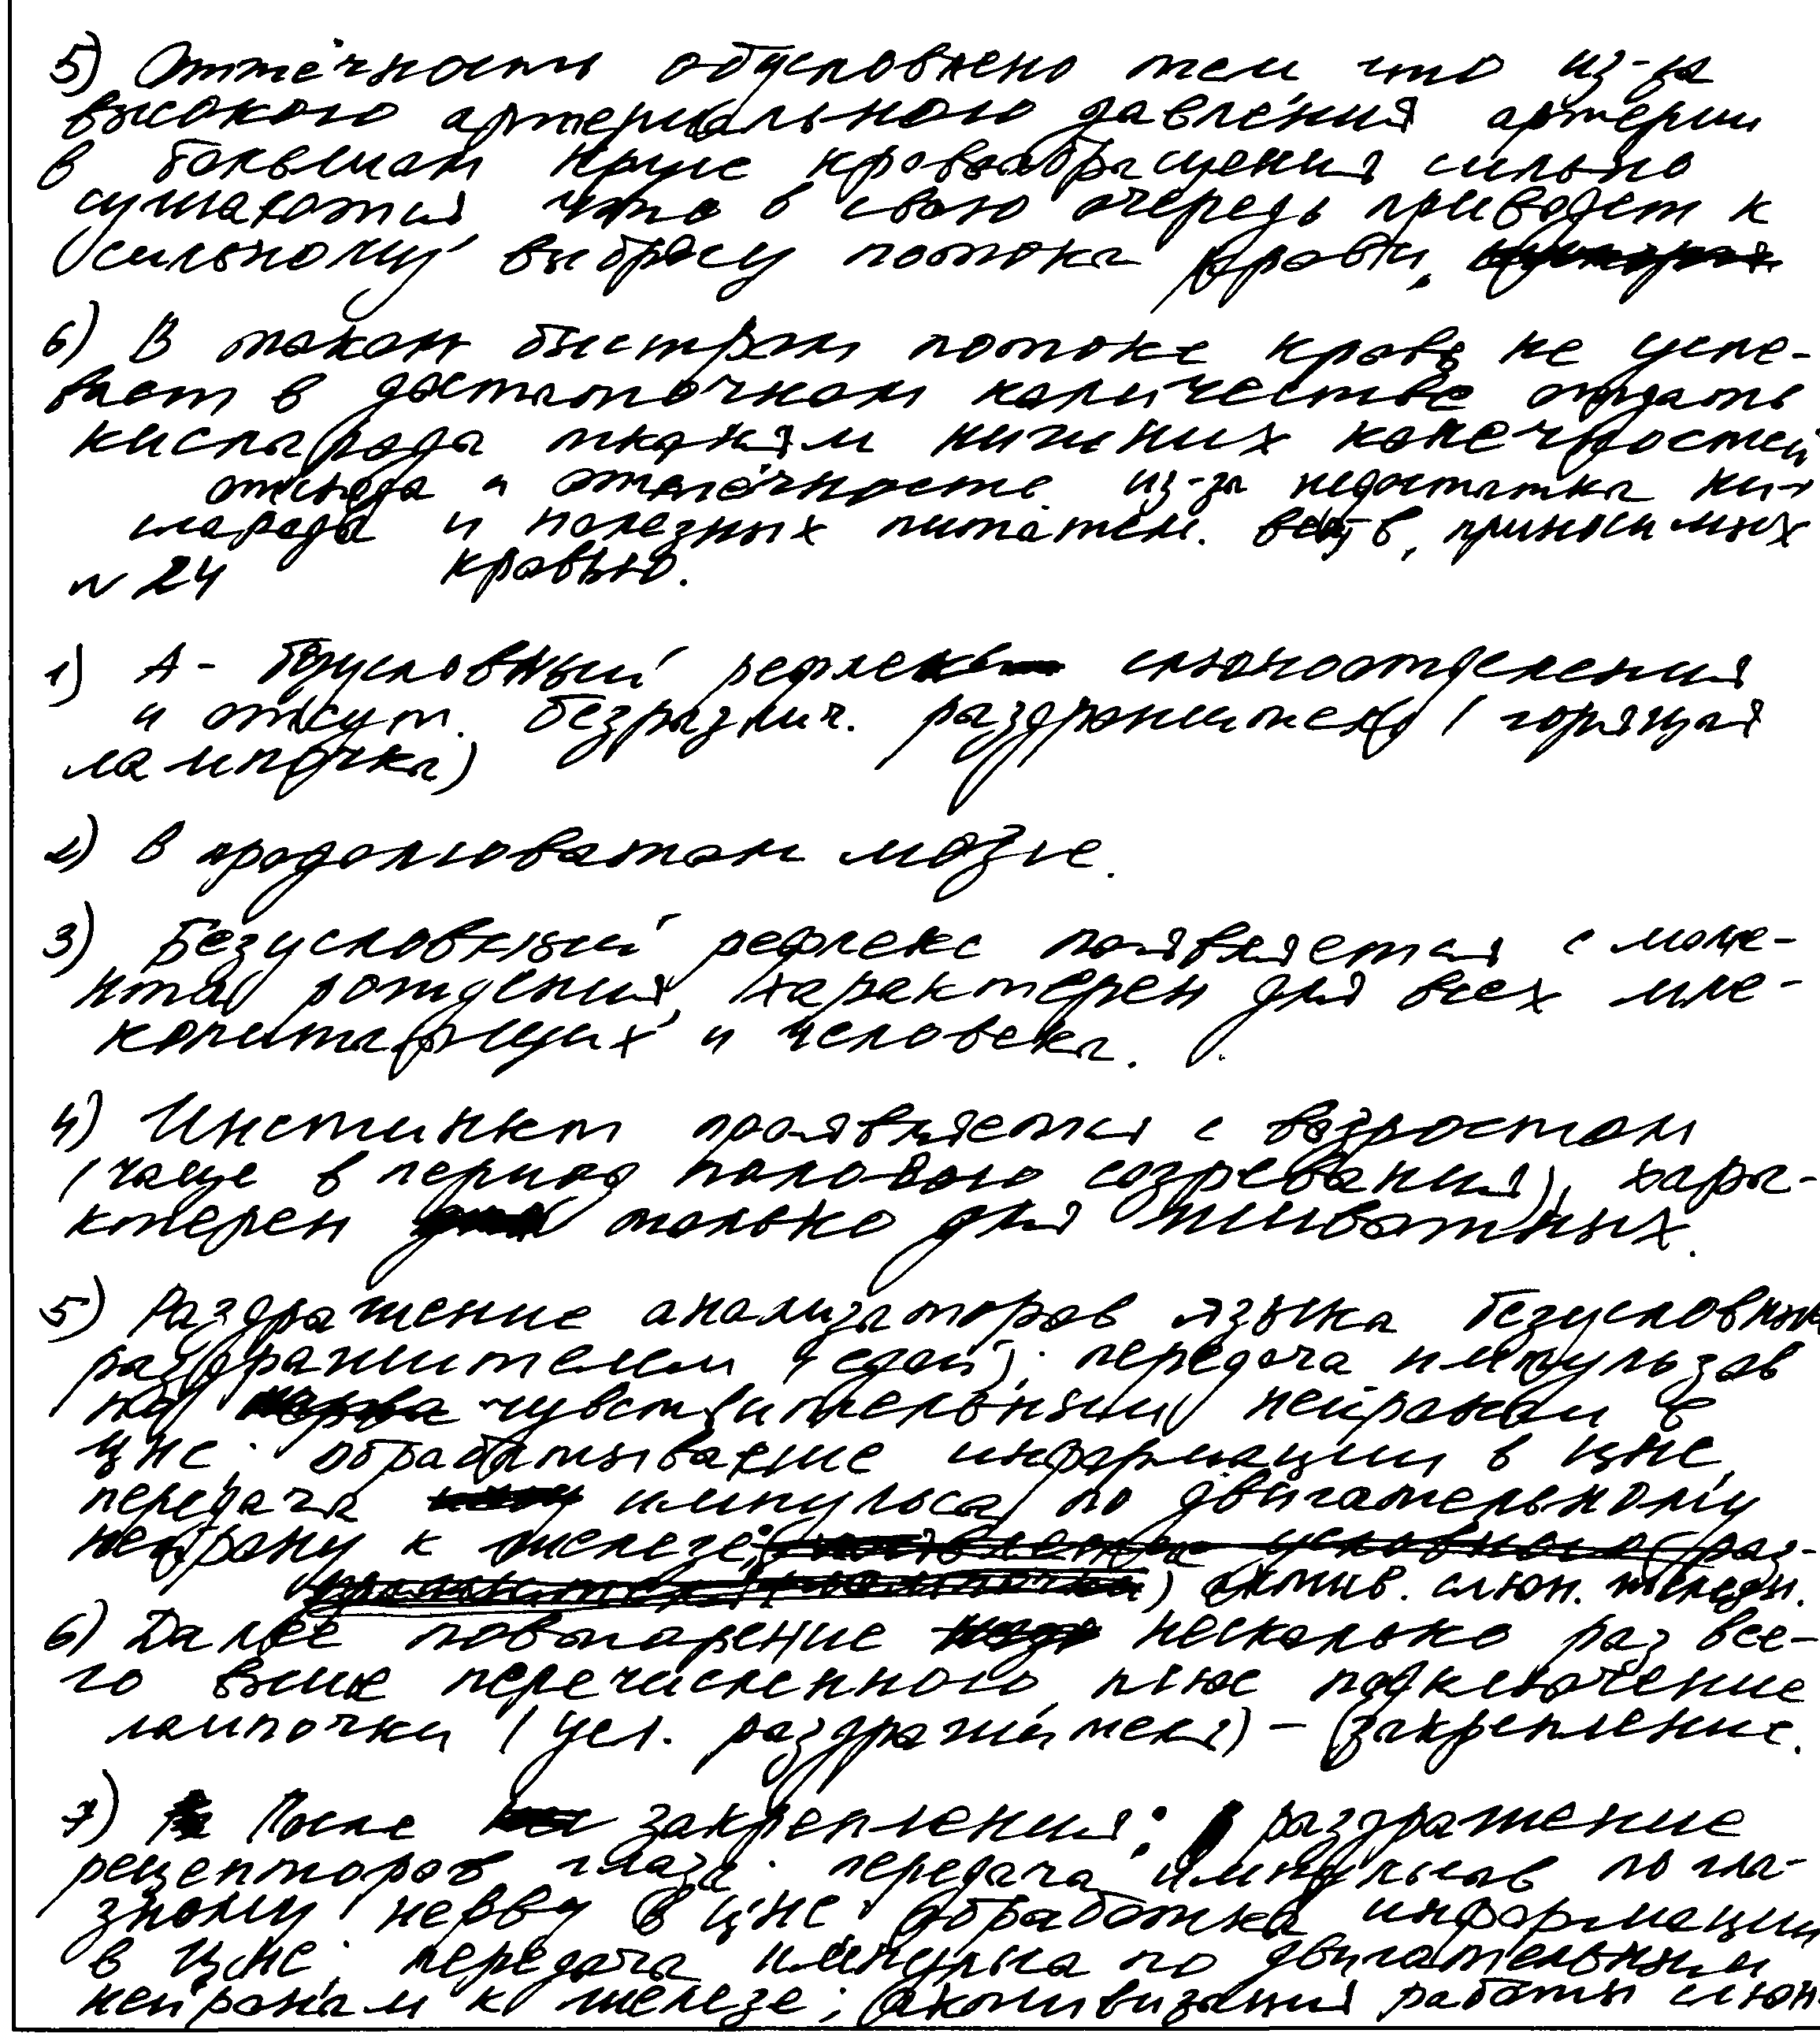 5) Оттёчность обусловлено тем что из-за
высокого артериального давления артерии
в большом круге кровообращения сильно
сужаются что в свою очередь приводет к
сильному выбросу потока крови.
6) В таком быстром потоке кровь не успе-
вает в достаточном количестве отдать
кислорода тканям нижних конечностей
отсюда и отттёчность из-за недостатка ки-
слорода и полезных питател. вещ-в, приносимых
кровью.
№ 24
1) А - безусловный рефлекс слюноотделения
и отсут. безразлич. раздражителя (горящая
лампочка)
2) В продолговатом мозге.
3) Безусловный рефлекс появляется с моме-
нта рождения, характерен для всех мле-
копитающих и человека.
4) Инстинкт проявляется с возрастом
(чаще в период полового созревания), хара-
ктерен только для животных.
5) Раздражение анализаторов языка безусловным
раздражителем (едой); передача импульзов
по чувствительным нейронам в
ЦНС; обрабатывание информации в ЦНС,
передача импульса по двигательному
нейрону к железе;
актив. слюн. железы.
6) Далее повторение несколько раз все-
го выше перечисленного, плюс подключение
лампочки (усл. раздражителя) - закрепление.
7) После закрепления: раздражение
рецепторов глаза; передача импульсов по гла-
зному нерву в ЦНС; обработка информации
в ЦНС; передача импульса по двигательным
нейронам к железе; активизация работы слюн.